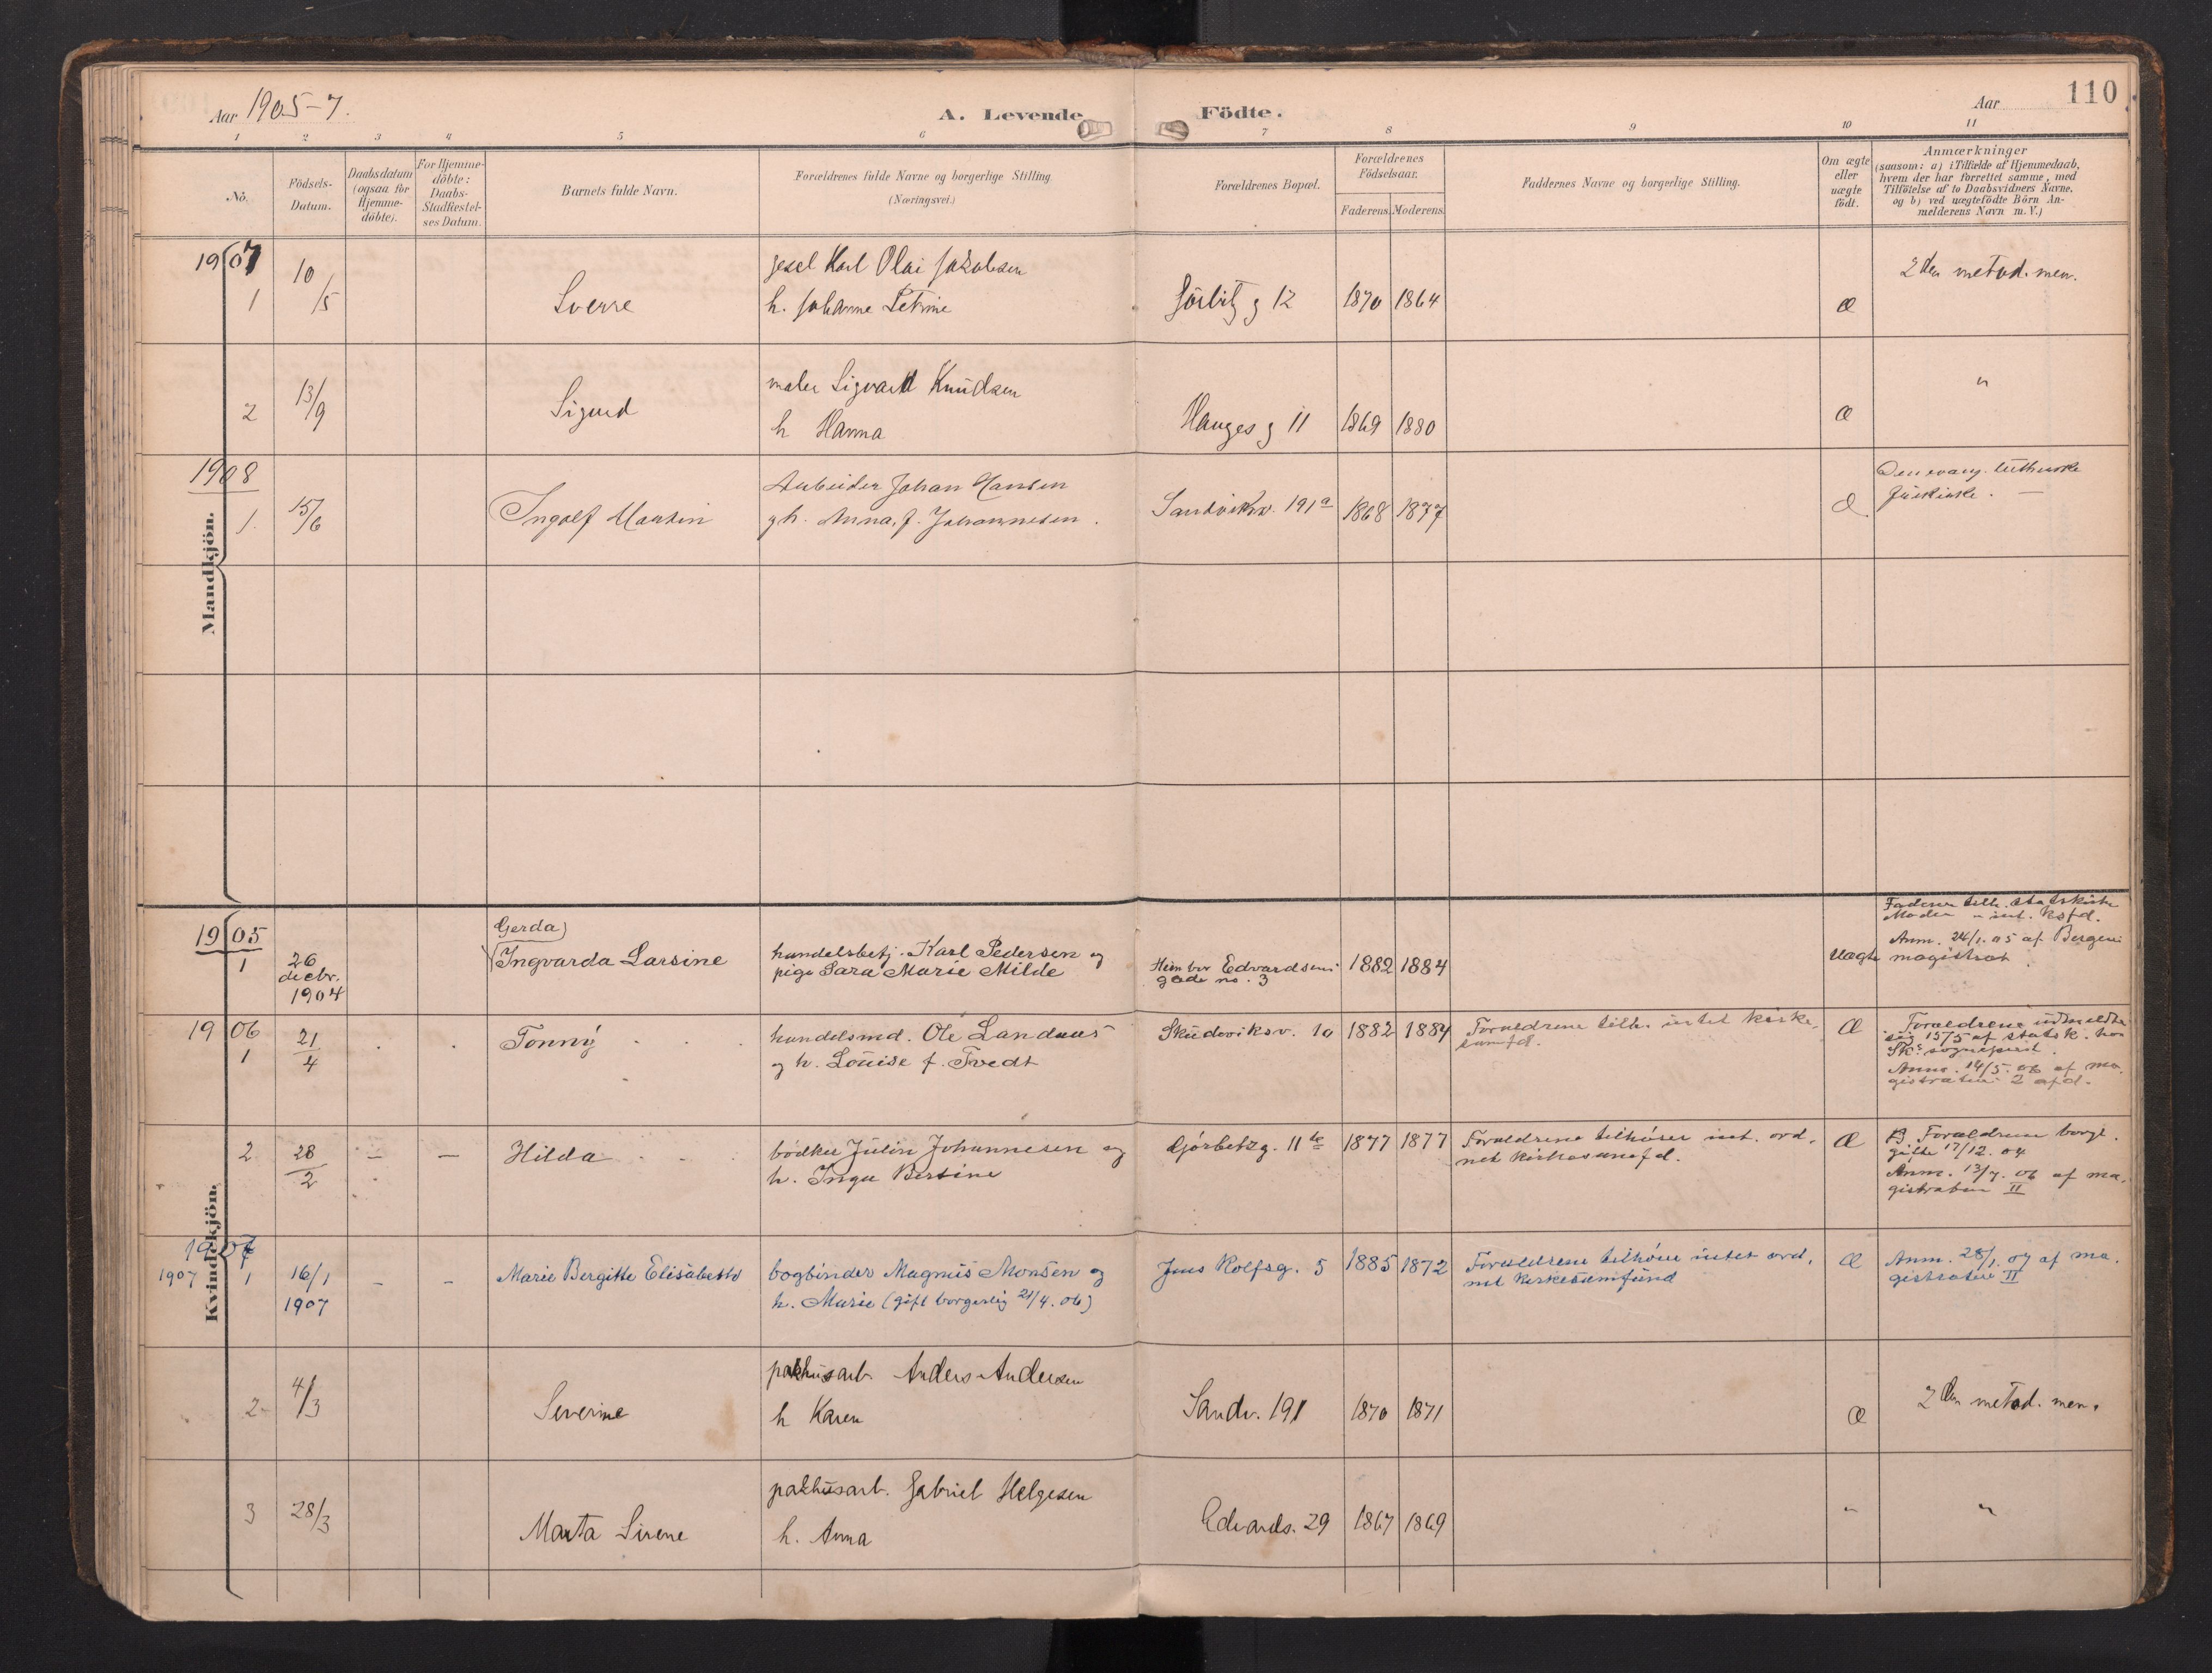 Aar 1905-7.
A. Levende Födte.
Aar
110
1 2 3 4 5 6 7 8 9 10 11
No.
Födsels-
Datum.
Daabsdatum
(ogsaa for
Hjemme-
döbte).
For Hjemme-
döbte:
Daabs-
Stadfæstel-
ses Datum.
Barnets fulde Navn.
Forældrenes fulde Navne og borgerlige Stilling
(Næringsvei.)
Forældrenes Bopæl.
Forældrenes
Födselsaar.
Faderens. Moderens.
Faddernes Navne og borgerlige Stilling.
Om ægte
eller
uægte
födt.
Anmærkninger
(saasom: a) i Tilfælde af Hjemmedaab,
hvem der har forrettet samme, med
Tilföielse af to Daabsvidners Navne,
og b) ved uægtefödte Börn An-
melderens Navn m. V.)
Mandkjön.
1907
1 10/5 Sverre gesel Karl Olai Jakobsen
h. Johanne Petrine
g 12 1870 1864 Æ 2den metod. men.
2 13/9 Sigurd maler Sigvard Knudsen
h Hanna
Hauges g 11 1869 1880 Æ "
1908
1. 15/6 Ingolf Martin Arbeider Johan Hansen
gh. Anna, f. Johannesen.
Sandviksv. 191a 1868 1877 Æ Den evang. lutherske
frikirke. —
Kvindekjön.
1905
1 26
decbr.
1904
Gerda)
Ingvarda Larsine
handelsbetj. Karl Pedersen og
pige Sara Marie Milde
Edvardsens
gade no. 3
1882 1884
Uægte
Faderen tilh. statskirke
Moder " int. Ksfd.
Anm. 24/1.05 af Bergens
magistrat.
1906
1 21/4 Tonny handelsmd. Ole Landaas
og h. Louise f. Tvedt
Skudeviksv. 10 1882 1884 Forældrene tilh. intet kirke-
samfd.
Æ Forældrene udmeldte
sig 15/5 af statsk. hos
Sk.s sogneprest.
Anm. 14/5.06 af ma-
gistraten 2 afd.
2 28/2 — — Hilda bödker Julin Johannesen og
h. Inga Bertine
11 1877 1877 Forældrene tilhører int. ord-
net kirkesamfd.
Æ Forældrene borgl.
gifte 17/12.04
Anm. 13/7.06 af ma-
gistraten II
1907
1907 1 16/1
1907
– – Marie Bergitte Elisabeth bogbinder Magnus Monsen og
h. Marie (gift borgerlig 21/4.06)
Jens Rolfsg. 5 1885 1872 Forældrene tilhører intet ord-
net kirkesamfund
Æ Anm. 28/1.07 af ma-
gistraten II
2 4/3 Severine pakhusarb. Anders Andersen
h Karen
Sandv. 191 1870 1871 Æ 2den metod. men.
3 28/3 Marta Sirene pakhusarb. Gabriel Helgesen
h. Anna
Edvards. 29 1867 1869 " "